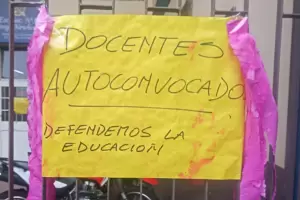 DOCENTES
AUTOCONVOCADO
DEFENDEMOS LA
EDUCACIÓN!